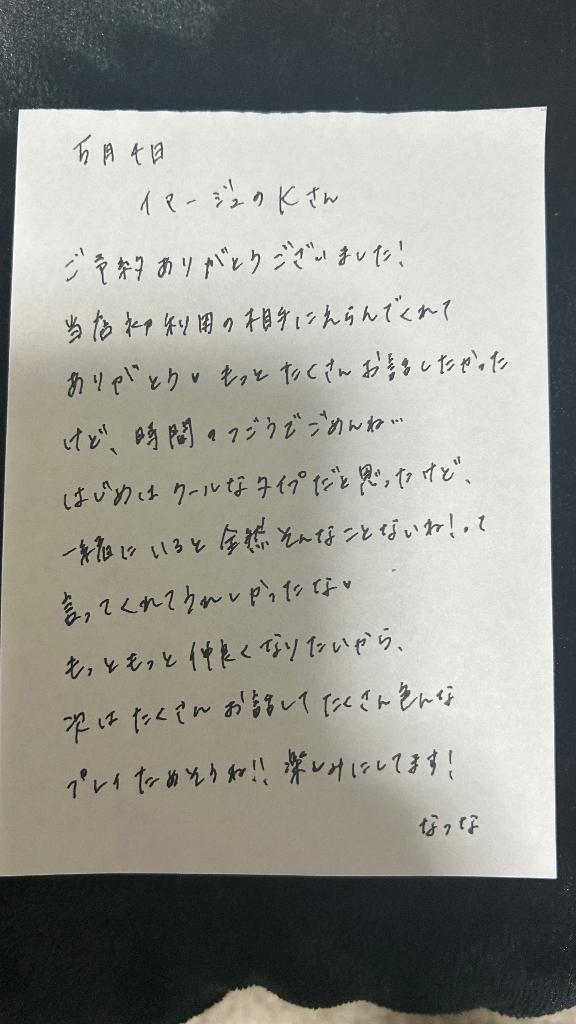 5月4日
イマージュのKさん
ご予約ありがとうございました!
当店初利用の相手にえらんでくれて
ありがとう♥もっとたくさんお話したかった
けど、時間のつごうでごめんね…
はじめはクールなタイプだと思ったけど、
一緒にいると全然そんなことないね!って
言ってくれてうれしかったな♥
もっともっと仲良くなりたいから、
次はたくさんお話してたくさん色んな
プレイためそうね!!楽しみにしてます!
なつな